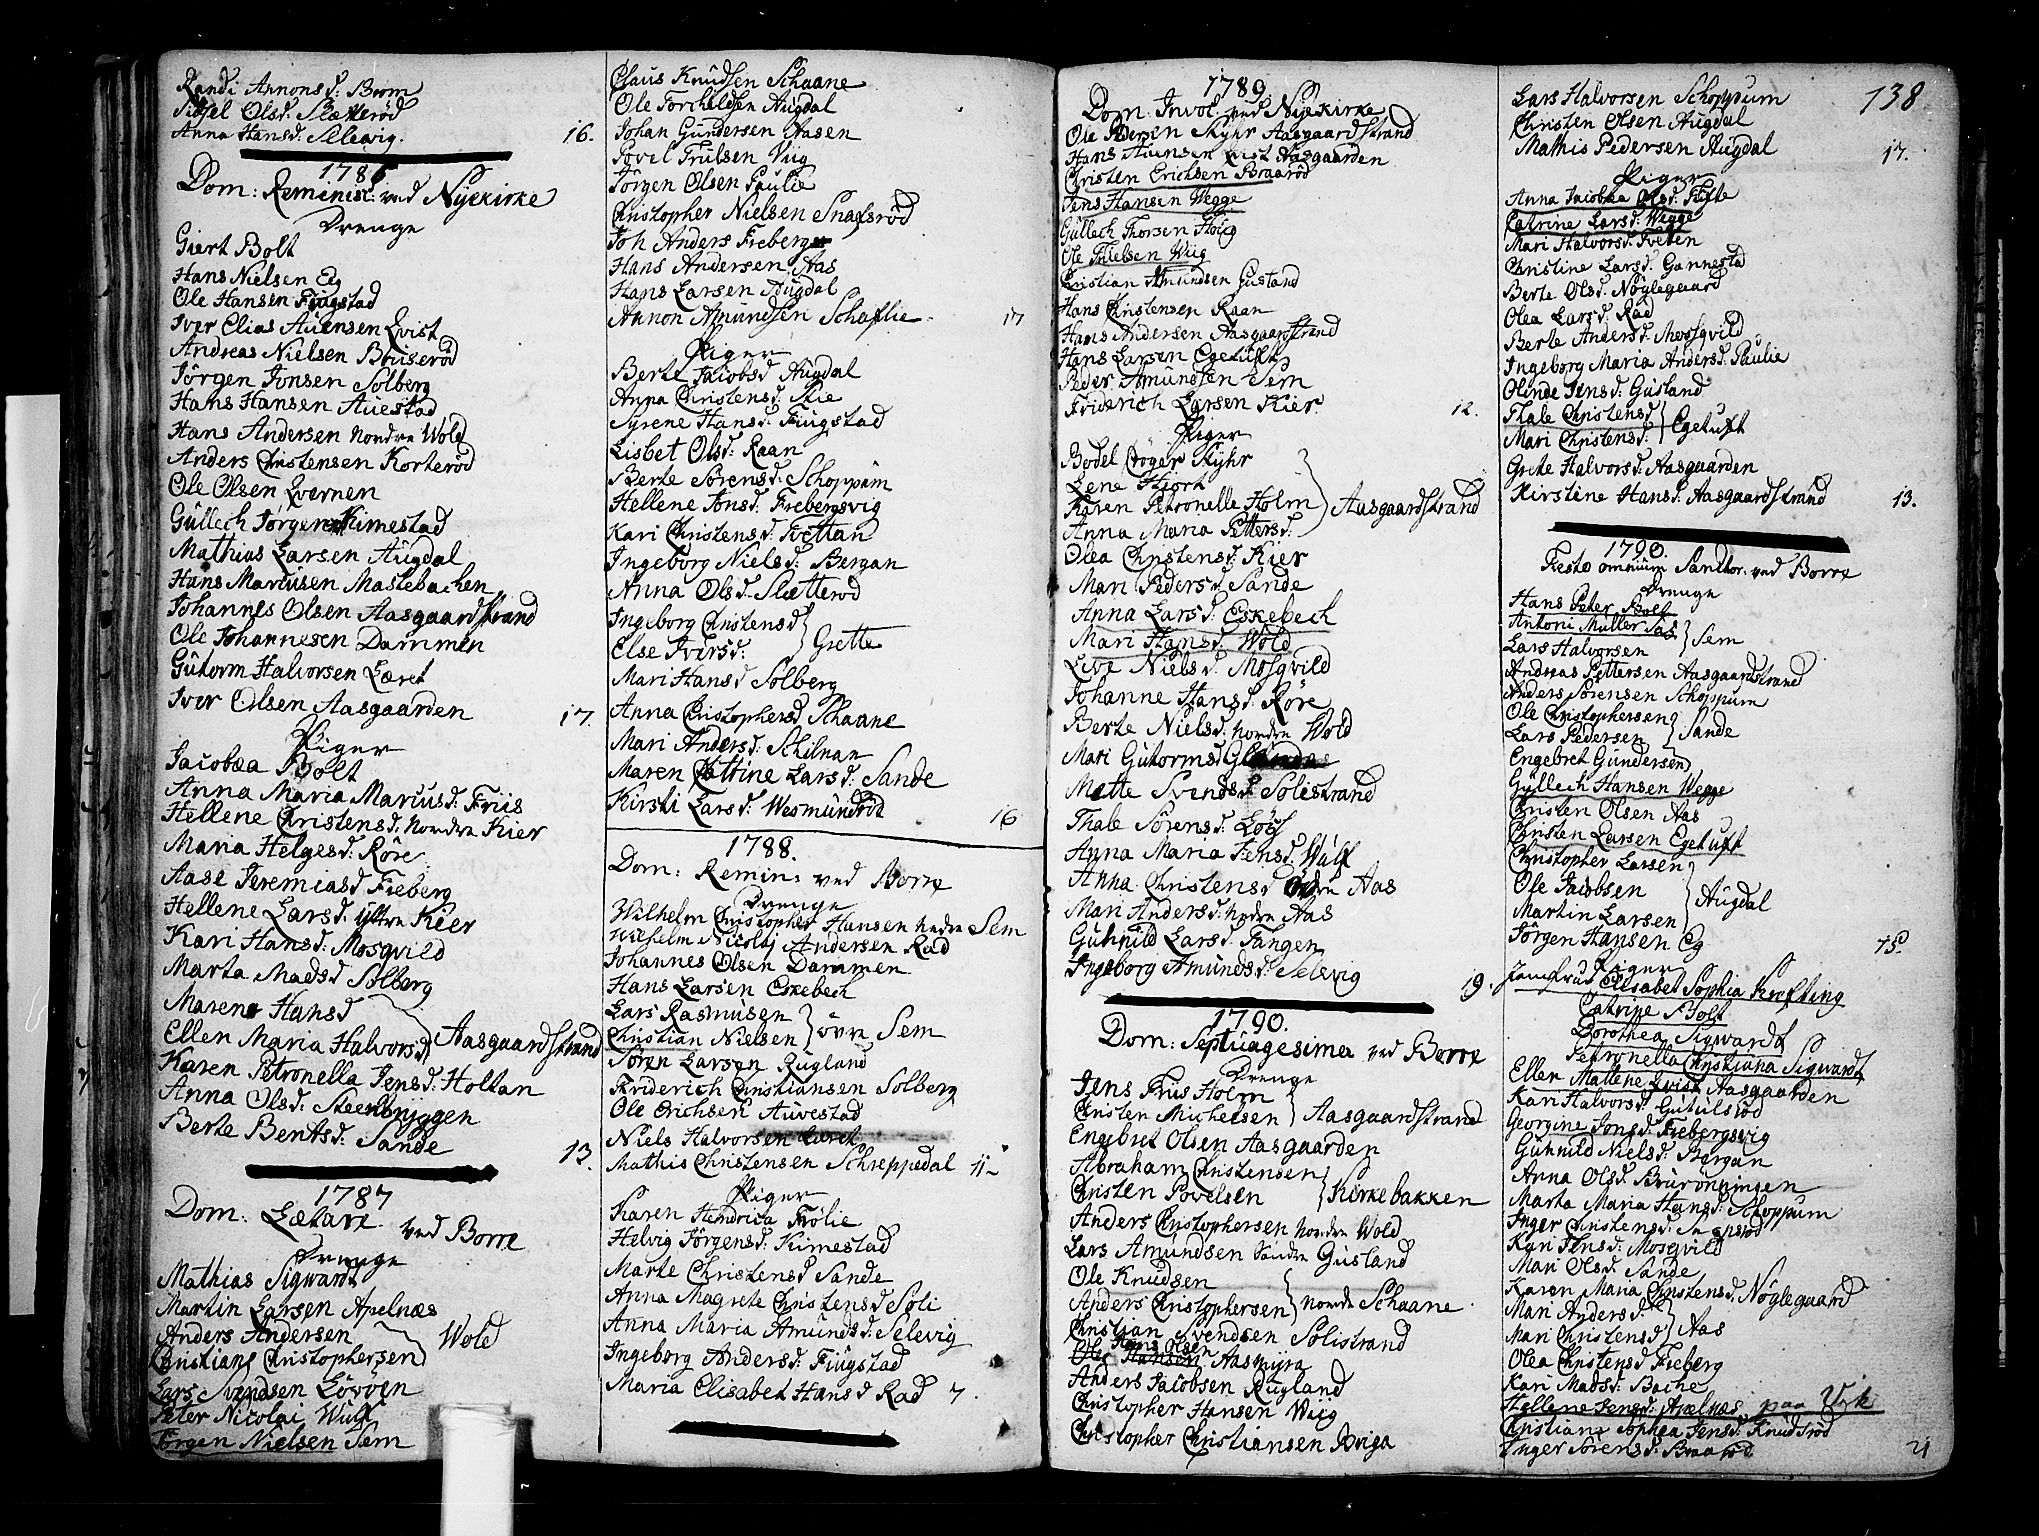 Randi Annonsd: Brom
Sidsel Olsd: Slætterød
Anna Hansd: Selevig. 16.
1786
Dom: Reminisc: ved Nÿekirke
Drenge
Giert Bolt
Hans Nielsen Eg
Ole Hansen Fiugstad
Iver Elias Auensen Qvist
Andreas Nielsen Bruserød
Jørgen Jonsen Solberg
Hans Hansen Auestad
Hans Andersen Nordre Wold
Anders Christensen Korterød
Ole Olsen Qvernen
Gullech Jørgens Kimestad
Mathias Larsen Augdal
Hans Marcusen Mastebachen
Johannes Olsen Aasgaardstrand
Ole Johannesen Dammen
Gutorm Halvorsen Læret
Iver Olsen Aasgaarden 17.
Piger
Jacobæa Bolt
Anna Maria Marcusd: Friis
Hellene Christensd: Nordre Kier
Maria Helgesd: Røre
Aase Jeremiasd: Freberg
Hellene Larsd: Ÿttre Kier
Kari Hansd: Mosqvild
Marta Madsd Solberg
Maren Hansd
Ellen Maria Halvorsd } Aasgaardstrand
Karen Petronella Jensd: Holtan
Anna Olsd: Steenbrÿggen
Berte Bentsd: Sande 13.
1787
Dom: Lætare ved Borre
Drenge
Mathias Sigwardt
Martin Larsen Apelnæs
Anders Andersen
Christians Christophersen } Wold
Lars Svendsen Løvøen
Peter Nicolai Wulf
Jørgen Nielsen Sem
Claus Knudsen Schaane
Ole Torchildsen Augdal
Johan Gundersen Aasen
Povel Trulsen Viig
Jørgen Olsen Paulie
Christopher Nielsen Snapsrød
Joh Anders Freberg
Hans Andersen Aas
Hans Larsen Augdal
Annon Amundsen Schaflie 17
Piger
Berte Jacobsd Augdal
Anna Christensd: Skie
Sÿrene Hansd: Fiugstad
Lisbet Olsd: Raan
Berte Sørensd: Schoppum
Hellene Jonsd: Frebergsvig
Kari Christensd: Tvettan
Ingeborg Nielsd: Bergan
Anna Olsd: Slætterød
Ingeborg Christensd
Else Iversd: } Grette
Mari Hansd Solberg
Anna Christophersd Schaane
Mari Andersd: Schilnan
Maren Cattrine Larsd: Sande
Kirsti Larsd: Wesmundrød 16
1788.
Dom: Remin: ved Borre
Drenge
Wilhelm Christopher Hansen nedre Sem
Wilhelm Nicolaj Andersen Rad
Johannes Olsen Dammen
Hans Larsen Eskebech
Lars Rasmusen
Christian Nielsen } øvre Sem
Søren Larsen Rugland
Friderich Christiansen Solberg
Ole Erichsen Auvestad
Niels Halvorsen
Mathis Christensen Schreppedal 11
Piger
Karen Hendrica Frølie
Helvig Jørgensd: Kimestad
Marte Christensd Sande
Anna Magrete Christensd Soli
Anna Maria Amundsd: Selevig
Ingeborg Andersd: Fiugstad
Maria Elisabet Hansd Rad 7.
1789.
Dom. Invoc. ved Nÿekirke
Ole Pedersen Mÿhr Aasgaardstrand
Hans Auensen Qvist Aasgaarden
Christen Erichsen Braarød
Jens Hansen Wegge
Gullech Thorsen Høig
Ole Thielsen Wiig
Christian Amundsen Gustand
Hans Christensen Raan
Hans Andersen Aasgaardstrand
Hans Larsen Egetuft
Peder Amundsen Sem
Friderich Larsen Kier 12.
Piger
Bodel Crøger Mÿhr
Lene Hiort
Karen Petronelle Holm
Anna Maria Pettersd: } Aasgaardstrand
Olea Christensd: Kier
Mari Pedersd: Sande
Anna Larsd: Eskebech
Mari Hansd Wold
Live Nielsd. Mosqvild
Johanne Hansd. Røre
Berte Nielsd: Nordre Wold
Mari Gutormsd
Mette Svendsd Solestrand
Thale Sørensd:
Anna Maria Jensd: Wulf
Anna Christensd Aas
Mari Andersd: nedre Aas
Gunnild Larsd: Tangen
Ingeborg Amundsd: Selevig 19.
1790.
Dom: Septuagesima ved Borre
Drenge
Jens Friis Holm
Christen Michelsen } Aasgaardstrand
Engebret Olsen Aasgaarden
Abraham Christensen
Christen Povelsen } Kirkebakken
Anders Christophersen Nordre Wold
Lars Amundsen Søndre Gusland
Ole Knudsen
Anders Christophersen } Nordre Schaane
Christian Svendsen Solistrand
Hans Olsen
Ole Hansen Aasmÿra
Anders Jacobsen Rugland
Christopher Hansen Wiig
Christopher Christiansen
138
Lars Halvorsen Schoppum
Christen Olsen Augdal
Mathis Pedersen Augdal 17.
Piger
Anna Jacobæa Olsd: Tufte
Catrine Larsd: Wegge
Mari Halvorsd: Tveten
Christine Larsd: Gannestad
Berte Olsd. Nøglegaard
Olea Larsd: Rad
Berte Andersd: Mosqvild
Ingeborg Maria Andersd: Paulie
Olinde Jensd: Gusland
Thale Christensd
Mari Christensd: } Egetuft
Grete Halvorsd: Aasgaarden
Kirstine Hansd: Aasgaardstrand 13.
1790.
Festo omnium Sanctor: ved Borre
Drenge
Hans Peter Bolt
Antoni Muller Sas
Lars Halvorsen } Sem
Andreas Pettersen Aasgaardstrand
Anders Sørensen Schoppum
Ole Christophersen
Lars Pedersen } Sande
Engebret Gundersen
Gullech Hansen Wegge
Christen Olsen Aas
Christen Larsen Egetuft
Christopher Larsen
Ole Jacobsen
Martin Larsen } Augdal
Jørgen Hansen Eg 15.
Piger
Jomfrue Elisabet Sophia Krefting
Catrine Bolt
Dorothea Sigwardt
Petronella Christiana Sigwardt
Ellen Mallene Qvist Aasgaarden
Kari Halvorsd Gutulsrød
Georgine Jonsd: Frebergsvig
Gunnild Nielsd: Bergan
Anna Olsd: Brurønningen
Marta Maria Hansd: Schoppum
Inger Christensd: Snapsrød
Kari Jensd: Mosqvild
Mari Olsd: Sande
Karen Maria Christensd: Nøglegaard
Mari Andersd:
Mari Christensd } Aas
Olea Christensd Freberg
Kari Madsd: Bache
Hellene Jensd: Apelnæs paa Vik
Christiane Sophea Jensd: Knudsrød
Inger Sørensd: Braarød 21